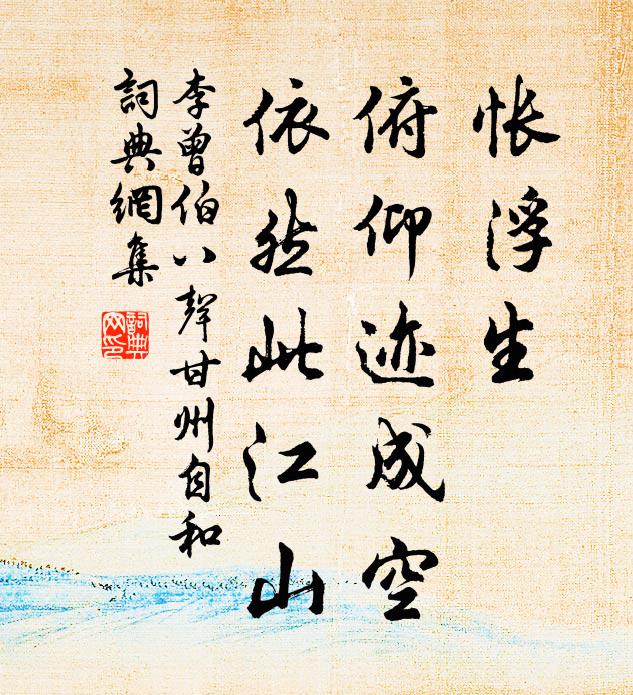 怅浮生
俯仰迹成空
依然此江山
李曾伯八聲甘州自和
詞典網集
詞典网印